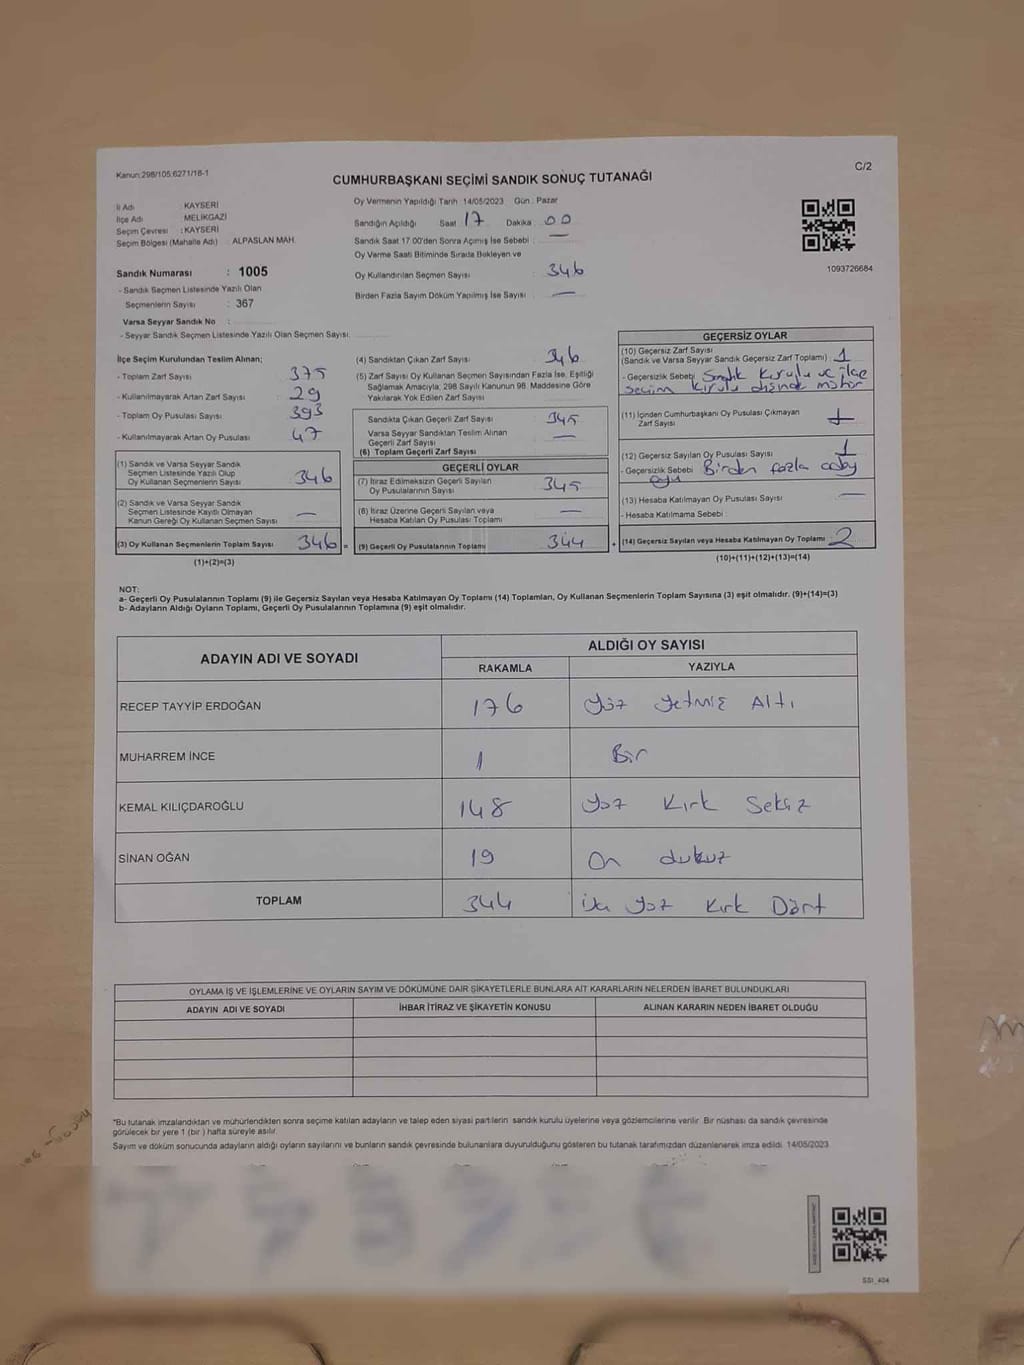 Kanun:298/105;6271/18-1
C/2
CUMHURBAŞKANI SEÇİMİ SANDIK SONUÇ TUTANAĞI
İl Adı : KAYSERİ
İlçe Adı : MELİKGAZİ
Seçim Çevresi : KAYSERİ
Seçim Bölgesi (Mahalle Adı) : ALPASLAN MAH.
Sandık Numarası : 1005
- Sandık Seçmen Listesinde Yazılı Olan
Seçmenlerin Sayısı : 367
Varsa Seyyar Sandık No :
- Seyyar Sandık Seçmen Listesinde Yazılı Olan Seçmen Sayısı:
Oy Vermenin Yapıldığı Tarih 14/05/2023 Gün : Pazar
Sandığın Açıldığı Saat 17 Dakika 00
Sandık Saat 17.00'den Sonra Açımış İse Sebebi : —
Oy Verme Saati Bitiminde Sırada Bekleyen ve
Oy Kullandırılan Seçmen Sayısı : 346
Birden Fazla Sayım Döküm Yapılmış İse Sayısı : —
1093726684
İlçe Seçim Kurulundan Teslim Alınan;
- Toplam Zarf Sayısı : 375
- Kullanılmayarak Artan Zarf Sayısı : 29
- Toplam Oy Pusulası Sayısı : 393
- Kullanılmayarak Artan Oy Pusulası : 47
(1) Sandık ve Varsa Seyyar Sandık
Seçmen Listesinde Yazılı Olup
Oy Kullanan Seçmenlerin Sayısı 346
(2) Sandık ve Varsa Seyyar Sandık
Seçmen Listesinde Kaydı Olmayan
Kanun Gereği Oy Kullanan Seçmen Sayısı —
(3) Oy Kullanan Seçmenlerin Toplam Sayısı 346 =
(1)+(2)=(3)
(4) Sandıktan Çıkan Zarf Sayısı 346
(5) Zarf Sayısı Oy Kullanan Seçmen Sayısından Fazla İse, Eşitliği
Sağlamak Amacıyla, 298 Sayılı Kanunun 98. Maddesine Göre
Yakılarak Yok Edilen Zarf Sayısı
Sandıkta Çıkan Geçerli Zarf Sayısı 345
Varsa Seyyar Sandıktan Teslim Alınan
Geçerli Zarf Sayısı —
(6) Toplam Geçerli Zarf Sayısı
GEÇERLİ OYLAR
(7) İtiraz Edilmeksizin Geçerli Sayılan
Oy Pusulalarının Sayısı 345
(8) İtiraz Üzerine Geçerli Sayılan veya
Hesaba Katılan Oy Pusulası Toplamı —
(9) Geçerli Oy Pusulalarının Toplamı 344 +
GEÇERSİZ OYLAR
(10) Geçersiz Zarf Sayısı
(Sandık ve Varsa Seyyar Sandık Geçersiz Zarf Toplamı) : 1
- Geçersizlik Sebebi : Sandık Kurulu ve ilçe
Seçim Kurulu dışında mühür
(11) İçinden Cumhurbaşkanı Oy Pusulası Çıkmayan
Zarf Sayısı
(12) Geçersiz Sayılan Oy Pusulası Sayısı : 1
- Geçersizlik Sebebi Birden fazla aday
oyu
(13) Hesaba Katılmayan Oy Pusulası Sayısı : —
- Hesaba Katılmama Sebebi :
(14) Geçersiz Sayılan veya Hesaba Katılmayan Oy Toplamı : 2
(10)+(11)+(12)+(13)=(14)
NOT:
a- Geçerli Oy Pusulalarının Toplamı (9) ile Geçersiz Sayılan veya Hesaba Katılmayan Oy Toplamı (14) Toplamları, Oy Kullanan Seçmenlerin Toplam Sayısına (3) eşit olmalıdır. (9)+(14)=(3)
b- Adayların Aldığı Oyların Toplamı, Geçerli Oy Pusulalarının Toplamına (9) eşit olmalıdır.
ADAYIN ADI VE SOYADI
ALDIĞI OY SAYISI
RAKAMLA YAZIYLA
RECEP TAYYİP ERDOĞAN 176 Yüz Yetmiş Altı
MUHARREM İNCE 1 Bir
KEMAL KILIÇDAROĞLU 148 Yüz Kırk Sekiz
SİNAN OĞAN 19 On dukuz
TOPLAM 344 Yüz Kırk Dört
OYLAMA İŞ VE İŞLEMLERİNE VE OYLARIN SAYIM VE DÖKÜMÜNE DAİR ŞİKAYETLERLE BUNLARA AİT KARARLARIN NELERDEN İBARET BULUNDUKLARI
ADAYIN ADI VE SOYADI İHBAR İTİRAZ VE ŞİKAYETİN KONUSU ALINAN KARARIN NEDEN İBARET OLDUĞU
*Bu tutanak imzalandıktan ve mühürlendikten sonra seçime katılan adayların ve talep eden siyasi partilerin sandık kurulu üyelerine veya gözlemcilerine verilir. Bir nüshası da sandık çevresinde
görülecek bir yere 1 (bir ) hafta süreyle asılır.
Sayım ve döküm sonucunda adayların aldığı oyların sayılarını ve bunların sandık çevresinde bulunanlara duyurulduğunu gösteren bu tutanak tarafımızdan düzenlenerek imza edildi. 14/05/2023
SSI_404